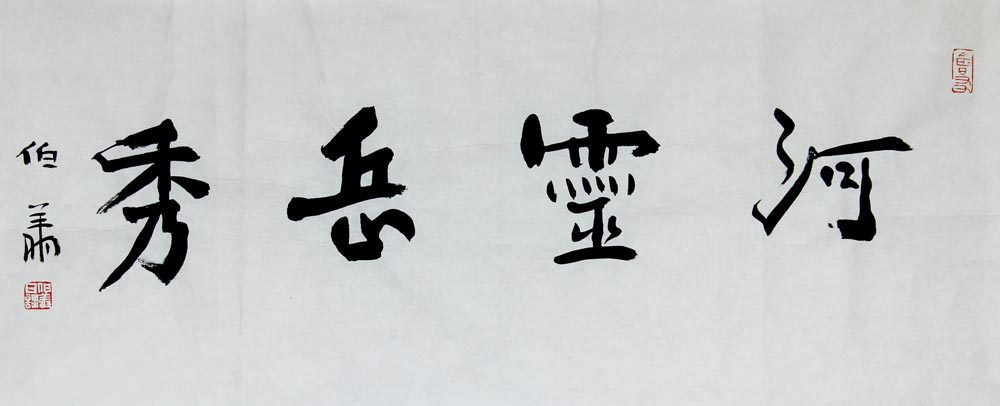 河靈岳秀
伯